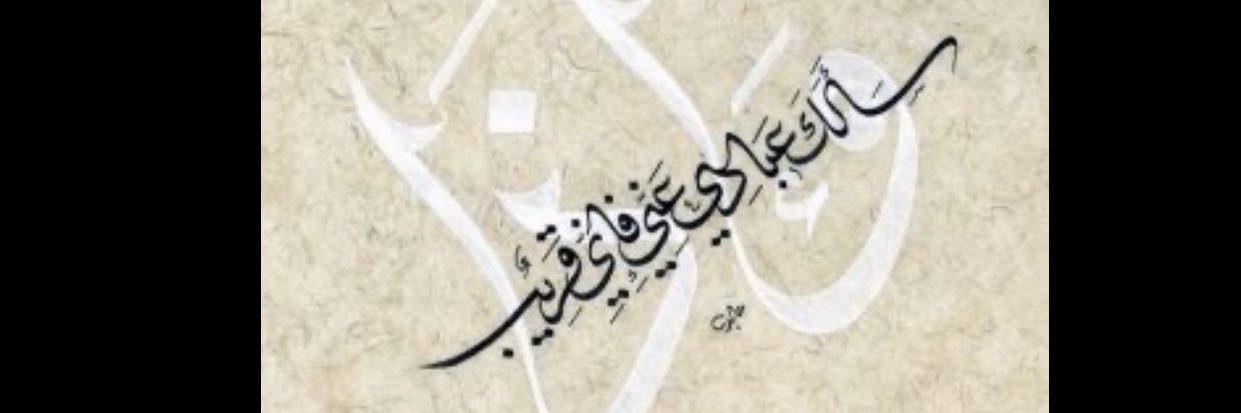 سَأَلَكَ عِبَادِي عَنِّي فَإِنِّي قَرِيبٌ